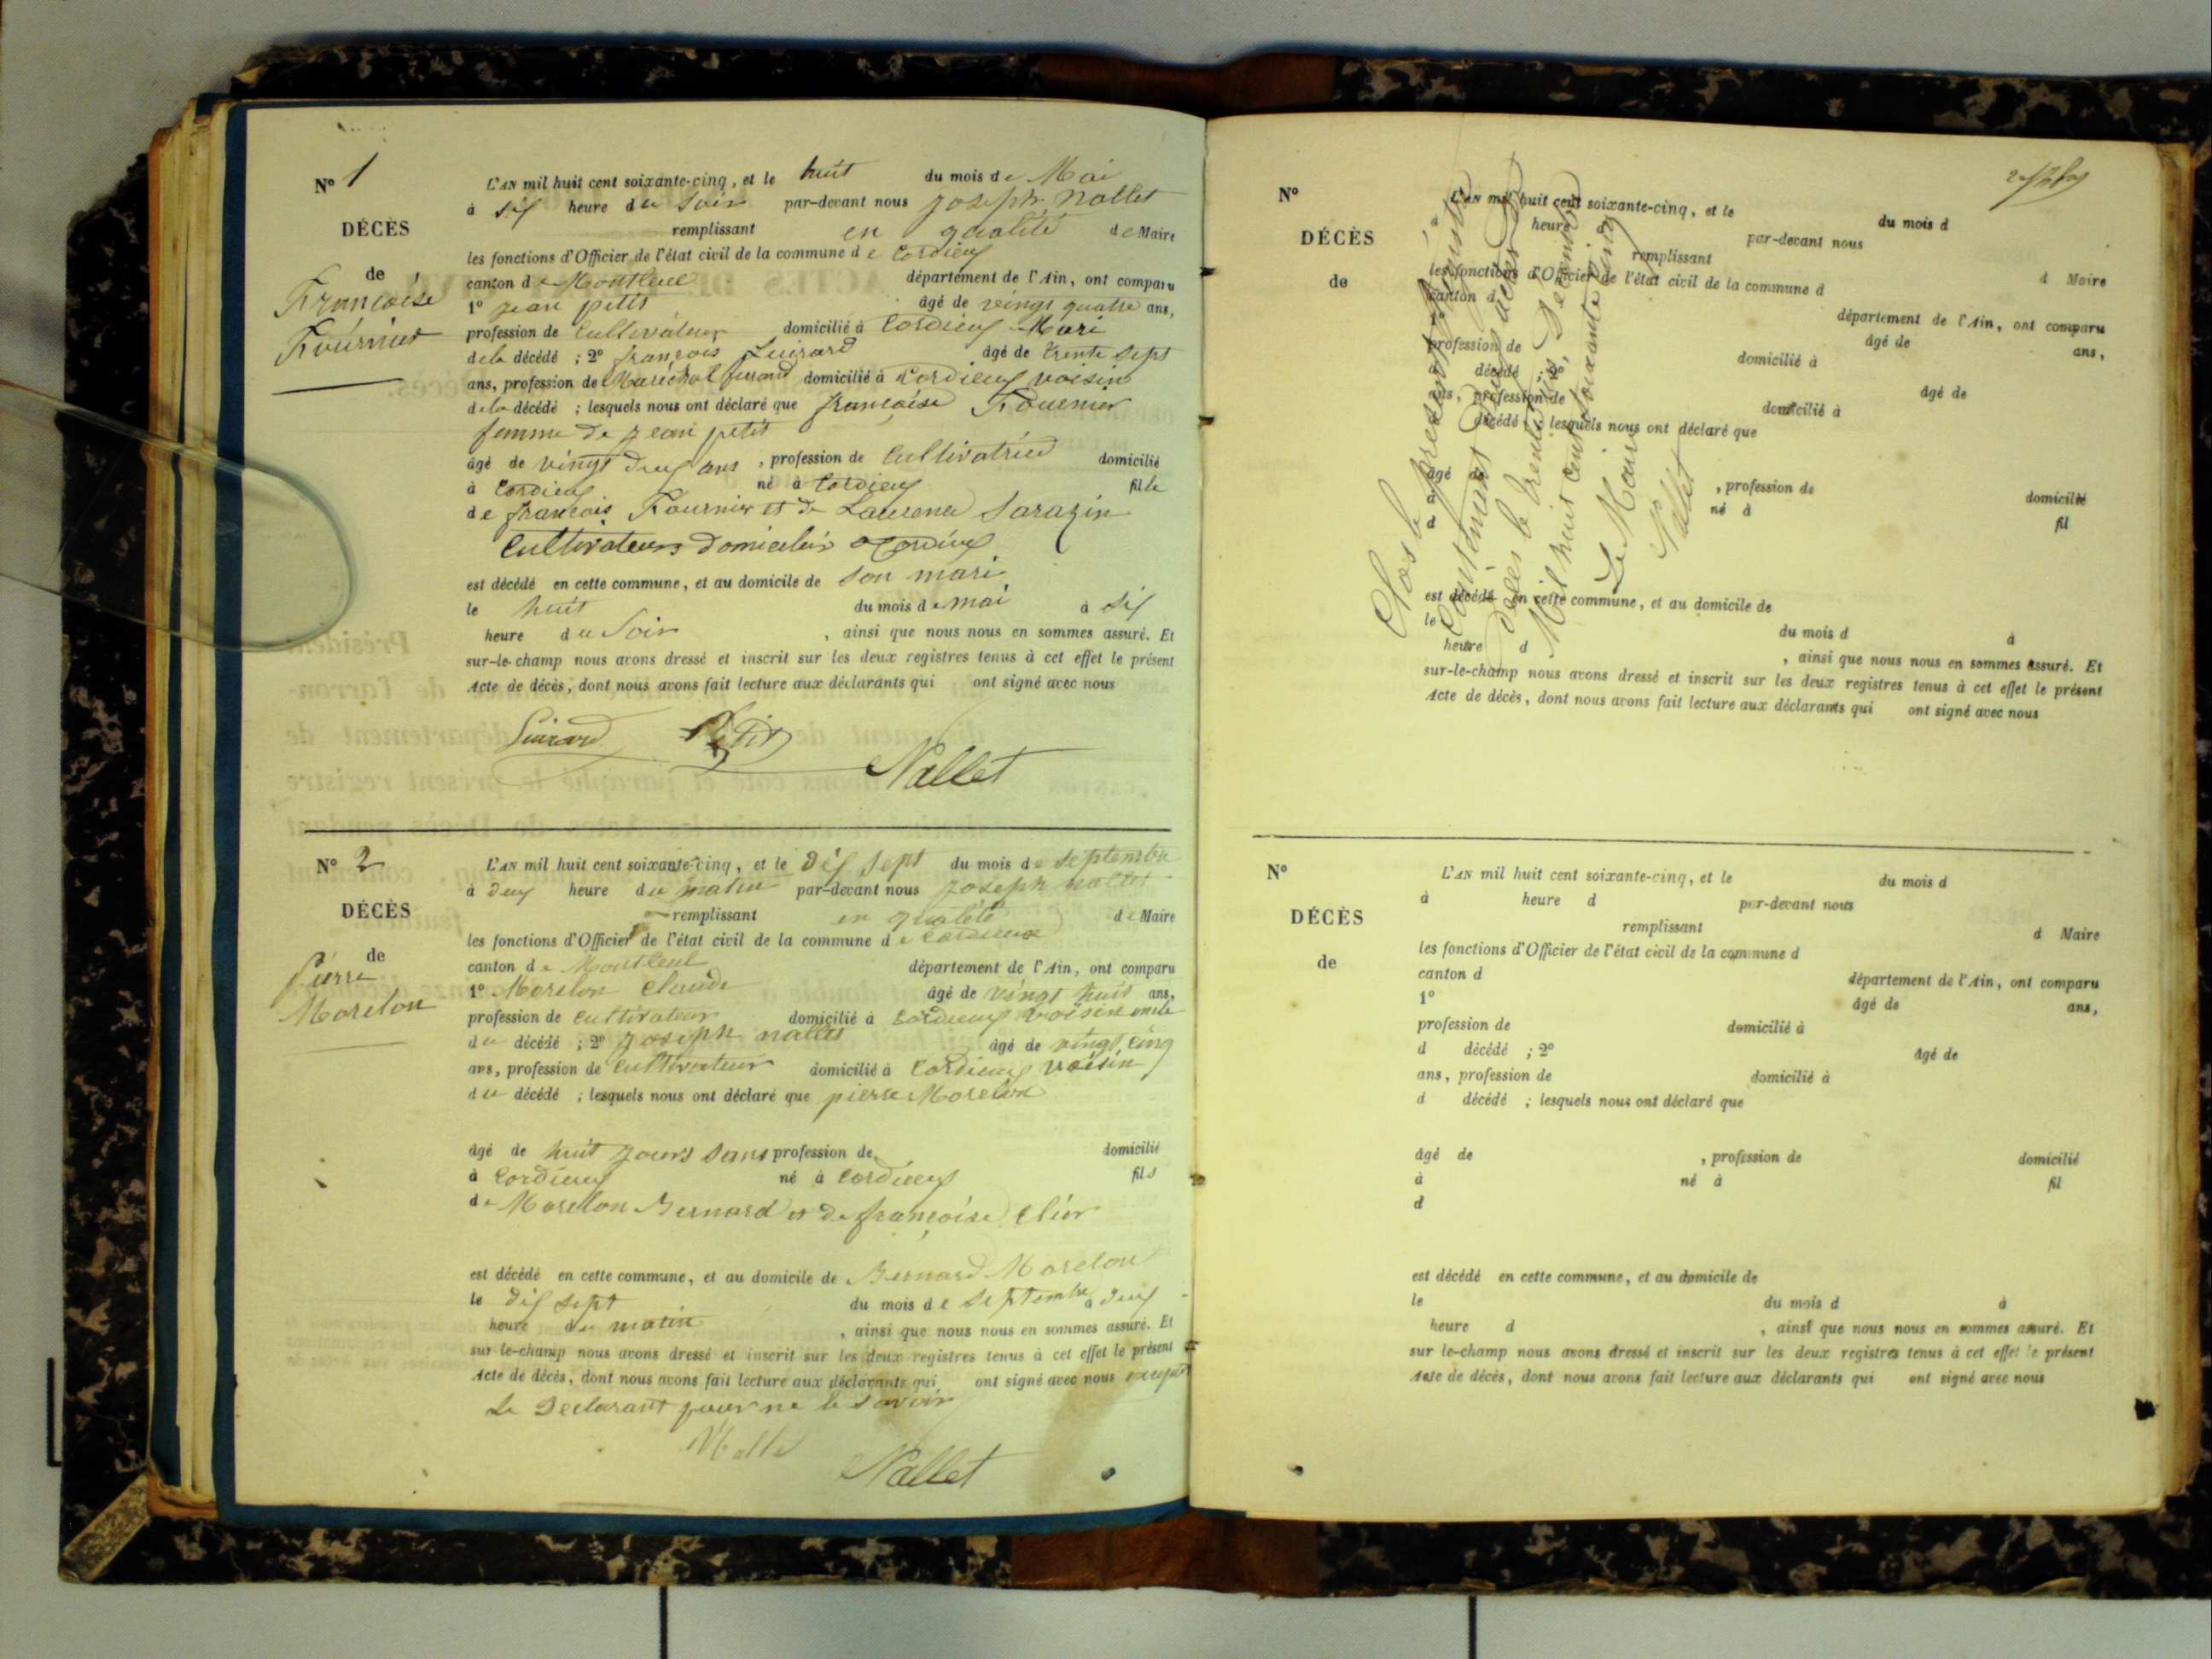 N° 1
DÉCÈS
de
Françoise
Fournier
L'AN mil huit cent soixante-cinq, et le huit du mois de Mai
à six heure du Soir par-devant nous joseph Nallet
remplissant en qualité de Maire
les fonctions d'Officier de l'état civil de la commune de Cordieux
canton de Montluel département de l'Ain, ont comparu
1° jean petit âgé de vingt quatre ans,
profession de Cultivateur domicilié à Cordieux Mari
dela décédé ; 2° françois Guirard âgé de trente sept
ans, profession de Maréchal ferrand domicilié à Cordieux voisin
dela décédé ; lesquels nous ont déclaré que françoise Fournier
femme de jean petit
âgé de vingt deux ans , profession de Cultivatrice domicilié
à Cordieux né à Cordieux fille
de francois Fournier et de Laurence Sarazin
Cultivateurs domiciliés a Cordieux
est décédé en cette commune, et au domicile de son mari
le huit du mois de mai à six
heure du Soir , ainsi que nous nous en sommes assuré. Et
sur-le-champ nous avons dressé et inscrit sur les deux registres tenus à cet effet le présent
Acte de décès, dont nous avons fait lecture aux déclarants qui ont signé avec nous
Guirard Petit
Nallet
N° 2
DÉCÈS
de
Pierre
Morelon
L'AN mil huit cent soixante-cinq, et le dix sept du mois de septembre
à deux heure du matin par-devant nous joseph nallet
remplissant en qualité de Maire
les fonctions d'Officier de l'état civil de la commune de Cordieux
canton de Montluel département de l'Ain, ont comparu
1° Morelon Claude âgé de vingt huit ans,
profession de Cultivateur domicilié à Cordieux voisin oncle
du décédé ; 2° joseph nallet âgé de vingt cinq
ans, profession de Cultivateur domicilié à Cordieux voisin
du décédé ; lesquels nous ont déclaré que pierre Morelon
âgé de huit jours sans profession de domicilié
à Cordieux né à Cordieux fils
de Morelon Bernard et de françoise
est décédé en cette commune, et au domicile de Bernard Morelon
le dix sept du mois de septembre à deux
heure du matin , ainsi que nous nous en sommes assuré. Et
sur-le-champ nous avons dressé et inscrit sur les deux registres tenus à cet effet le présent
Acte de décès, dont nous avons fait lecture aux déclarants qui ont signé avec nous excepté
le Declarant pour ne le savoir
Nallet
Nallet
N°
DÉCÈS
de
L'AN mil huit cent soixante-cinq, et le du mois d
à heure d par-devant nous
remplissant d Maire
les fonctions d'Officier de l'état civil de la commune d
canton d département de l'Ain, ont comparu
1° âgé de ans,
profession de domicilié à
d décédé ; 2° âgé de
ans, profession de domicilié à
d décédé ; lesquels nous ont déclaré que
âgé de , profession de domicilié
à né à fil
d
est décédé en cette commune, et au domicile de
le du mois d à
heure d , ainsi que nous nous en sommes assuré. Et
sur-le-champ nous avons dressé et inscrit sur les deux registres tenus à cet effet le présent
Acte de décès, dont nous avons fait lecture aux déclarants qui ont signé avec nous
Clos le présent registre
Contenant deux actes de
décès le trente un Décembre
Mil huit cent soixante cinq
Le Maire
Nallet
N°
DÉCÈS
de
L'AN mil huit cent soixante-cinq, et le du mois d
à heure d par-devant nous
remplissant d Maire
les fonctions d'Officier de l'état civil de la commune d
canton d département de l'Ain, ont comparu
1° âgé de ans,
profession de domicilié à
d décédé ; 2° âgé de
ans, profession de domicilié à
d décédé ; lesquels nous ont déclaré que
âgé de , profession de domicilié
à né à fil
d
est décédé en cette commune, et au domicile de
le du mois d à
heure d , ainsi que nous nous en sommes assuré. Et
sur le-champ nous avons dressé et inscrit sur les deux registres tenus à cet effet le présent
Acte de décès, dont nous avons fait lecture aux déclarants qui ont signé avec nous